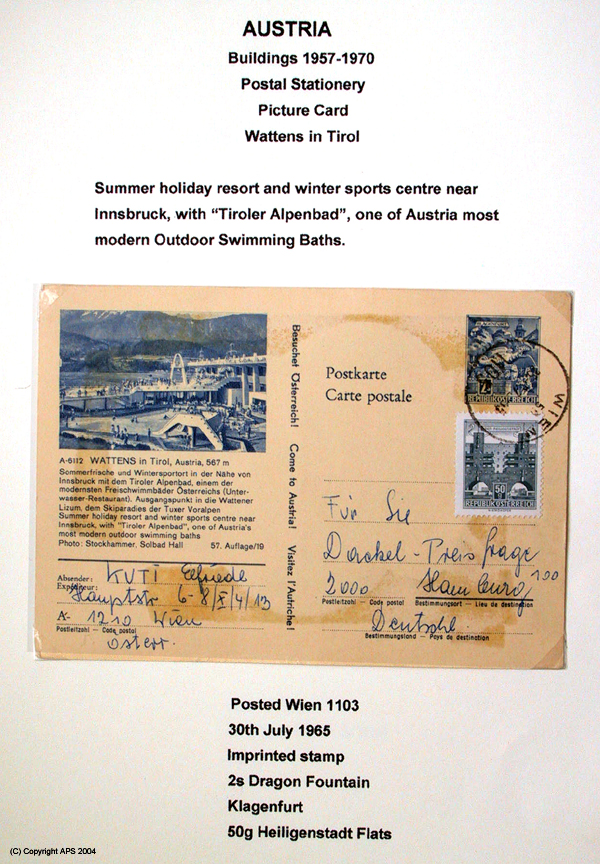 AUSTRIA
Buildings 1957-1970
Postal Stationery
Picture Card
Wattens in Tirol
Summer holiday resort and winter sports centre near
Innsbruck, with “Tiroler Alpenbad”, one of Austria most
modern Outdoor Swimming Baths.
A-6112 WATTENS in Tirol, Austria, 567 m
Sommerfrische und Wintersportort in der Nähe von
Innsbruck mit dem Tiroler Alpenbad, einem der
modernsten Freischwimmbäder Österreichs (Unter-
wasser-Restaurant). Ausgangspunkt in die Wattener
Lizum, dem Skiparadies der Tuxer Voralpen
Summer holiday resort and winter sports centre near
Innsbruck, with "Tiroler Alpenbad", one of Austria's
most modern outdoor swimming baths
Photo: Stockhammer, Solbad Hall 57. Auflage/19
Absender:
Expéditeur:
KUTI Elfriede
Hauptstr 6-8/X/4/13
A- 1210 Wien
Postleitzahl - Code postal
Österr.
Besuchet Österreich! Come to Austria! Visitez l'Autriche!
Postkarte
Carte postale
KLAGENFURT
2
REPUBLIK ÖSTERREICH
WIEN
50
REPUBLIK ÖSTERREICH
Für Sie
Dackel-Preisfrage
2000 Hamburg 100
Postleitzahl - Code postal Bestimmungsort - Lieu de destination
Deutschl.
Bestimmungsland - Pays de destination
Posted Wien 1103
30th July 1965
Imprinted stamp
2s Dragon Fountain
Klagenfurt
50g Heiligenstadt Flats
(C) Copyright APS 2004